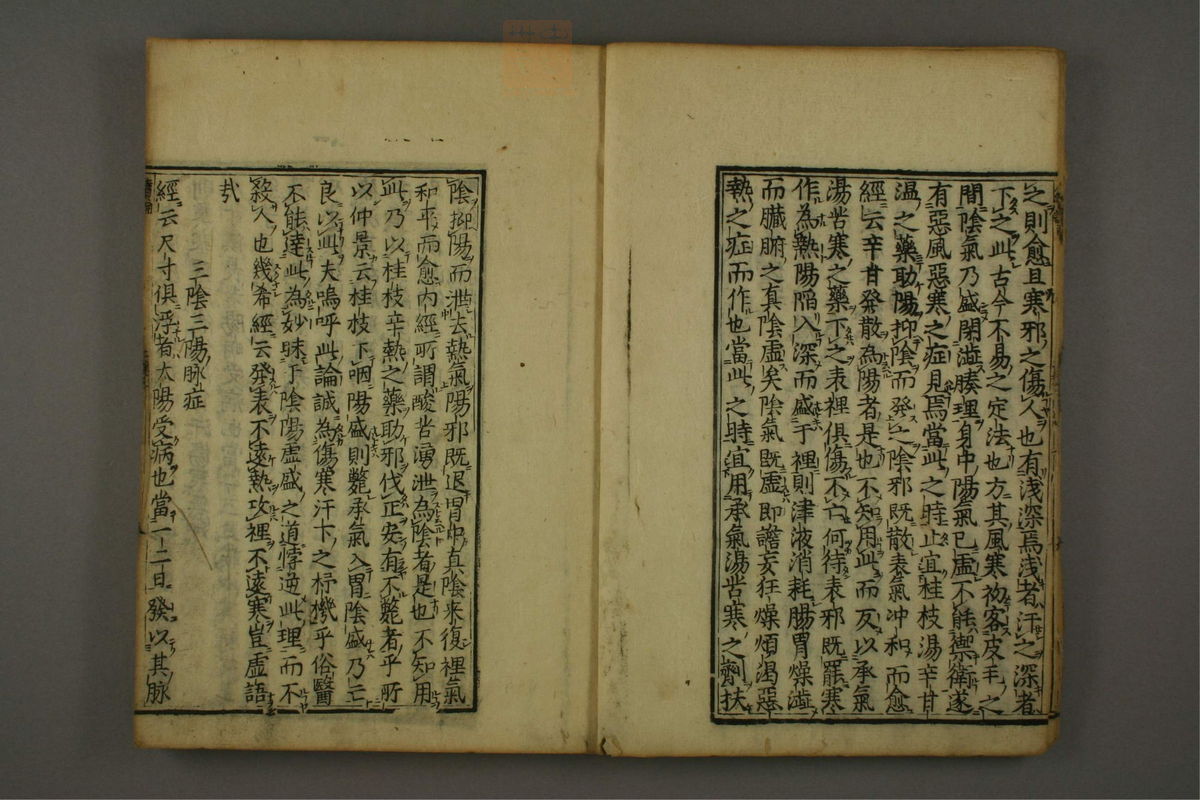 之則愈且寒邪之傷人也有淺深焉淺者汗之深者
下之此古今不易之定法也方其風寒初客皮毛之
間陰氣乃盛閉澁腠理身中陽氣已虛不能禦衛遂
有惡風惡寒之症見焉當此之時止宜桂枝湯辛甘
温之藥助陽抑陰而發之陰邪既散表氣冲和而愈
經云辛甘發散為陽者是也不知用此而反以承氣
湯苦寒之藥下之表裡俱傷不亡何待表邪既罷寒
作為熱陽陷入深而盛于裡則津液消耗腸胃燥澁
而臟腑之真陰虛矣陰氣既虛即譫妄狂燥煩渴惡
熱之症而作也當此之時宜用承氣湯苦寒之劑扶
陰抑陽而泄去熱氣陽邪既退胃中真陰来復裡氣
和平而愈内經所謂酸苦湧泄為陰者是也不知用
此乃以桂枝辛熱之藥助邪伐正安有不斃者乎所
以仲景云桂枝下咽陽盛則斃承氣入胃陰盛乃亡
良以此夫嗚呼此論誠為傷寒汗下之樞機乎俗醫
不能達此為妙昧于陰陽虛盛之道悖逆此理而不
殺人也幾希經云發表不遠熱攻裡不遠寒豈虛語
㢤
三陰三陽脉症
經云尺寸俱浮者太陽受病也當一二日發以其脉